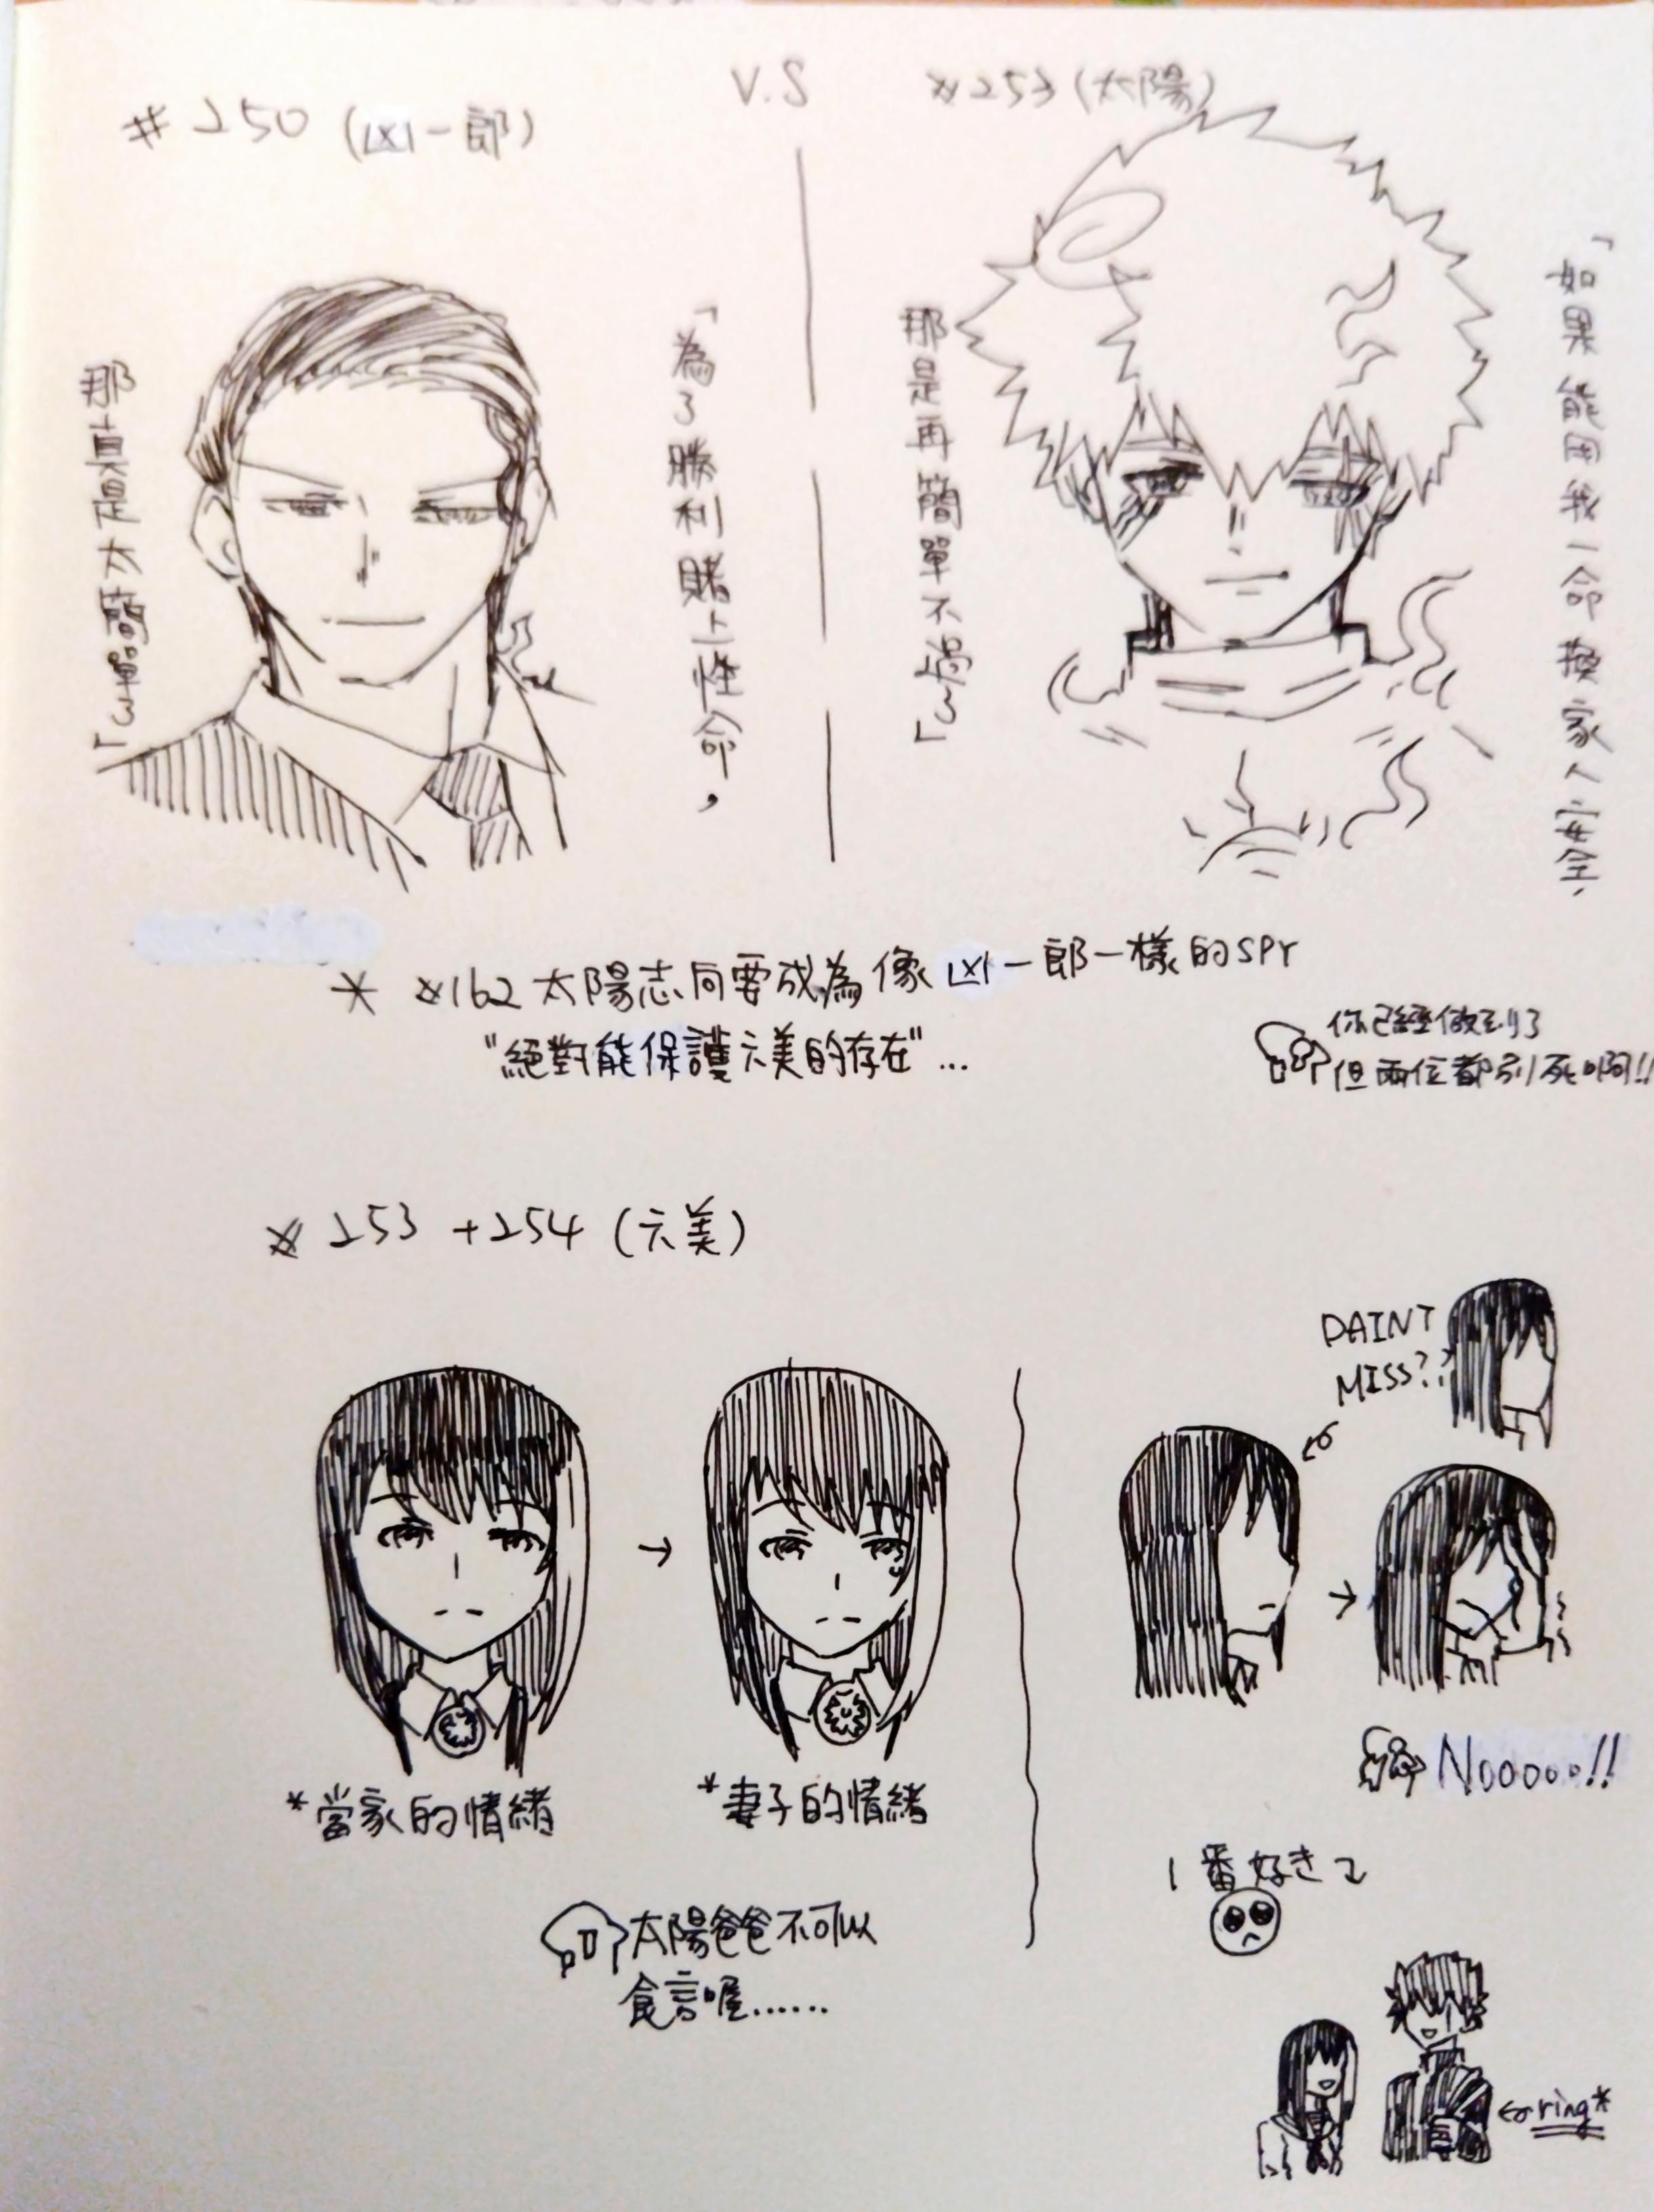 V.S
#250 (凶一郎)
「為了勝利賭上性命，
那真是太簡單了」
※253 (太陽)
「如果能用我一命換家人安全，
那是再簡單不過了」
* ※162 太陽志向要成為像凶一郎一樣的SPY
"絕對能保護六美的存在"...
你已經做到了
但兩位都別死啊!!
※ 253 + 254 (六美)
*當家的情緒
→
*妻子的情緒
太陽爸爸不可以
食言喔......
PAINT
MISS??
→
Nooooo!!
1番好きで
←ring*